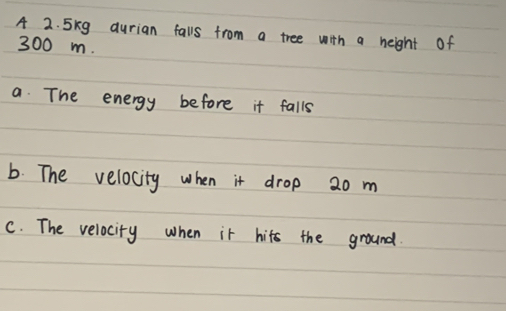 A 2.5kg durian falls from a tree with a height of
300 m.
a. The energy before it falls
b. The velocity when it drop 20 m
c. The velocity when it hits the ground.